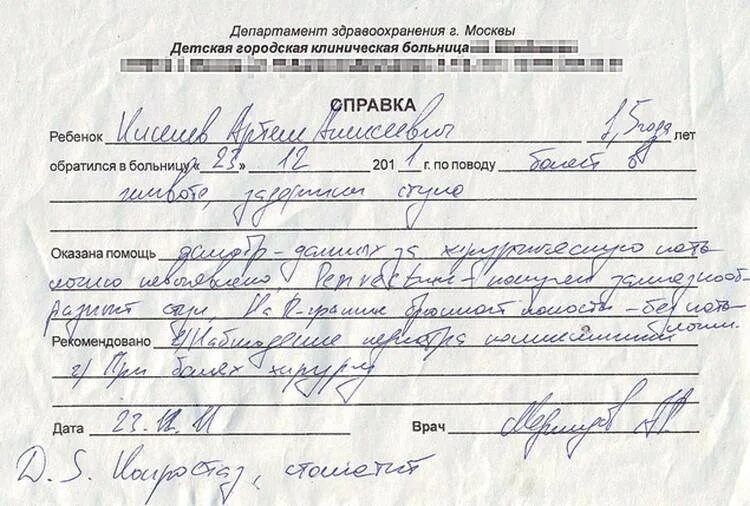 Департамент здравоохранения г. Москвы
Детская городская клиническая больница
СПРАВКА
Ребенок Киселев Артем Алексеевич 1,5 года лет
обратился в больницу «23» 12 2011 г. по поводу болей в
животе, задержки стула
Оказана помощь осмотр - данных за хирургическую пато-
логию невыявлено, Per rectum - получен замазкооб-
разный стул, На R-грамме брюшной полости - без пато-
логии.
Рекомендовано 1) Наблюдение педиатра поликлиники
2) При болях хирург
Дата 23.12.11 Врач
D. S. Копростаз, стоматит